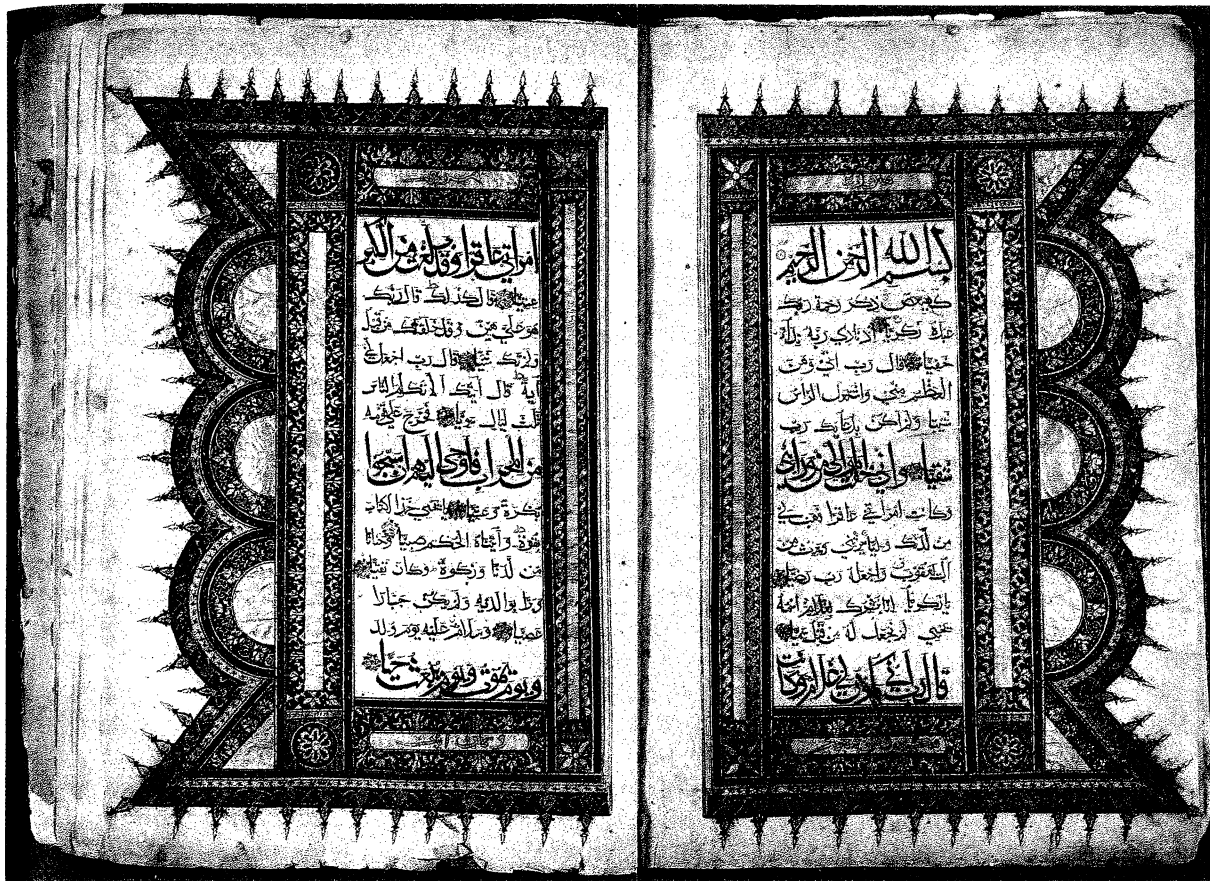 بسم الله الرحمن الرحيم
كهيعص ذكر رحمة ربك
عبده زكريا اذ نادى ربه نداء
خفيا قال رب اني وهن
العظم مني واشتعل الراس
شيبا ولم اكن بدعائك رب
شقيا واني خفت الموالي من ورائي
وكانت امراتي عاقرا فهب لي
من لدنك وليا يرثني ويرث من
آل يعقوب واجعله رب رضيا
يا زكريا انا نبشرك بغلام اسمه
يحيى لم نجعل له من قبل سميا
قال رب انى يكون لي غلام وكانت
امراتي عاقرا وقد بلغت من الكبر
عتيا قال كذلك قال ربك
هو علي هين وقد خلقتك من قبل
ولم تك شيئا قال رب اجعل لي
آية قال آيتك الا تكلم الناس
ثلث ليال سويا فخرج على قومه
من المحراب فاوحى اليهم ان سبحوا
بكرة وعشيا يا يحيى خذ الكتاب
بقوة وآتيناه الحكم صبيا وحنانا
من لدنا وزكوة وكان تقيا
وبرا بوالديه ولم يكن جبارا
عصيا وسلام عليه يوم ولد
ويوم يموت ويوم يبعث حيا